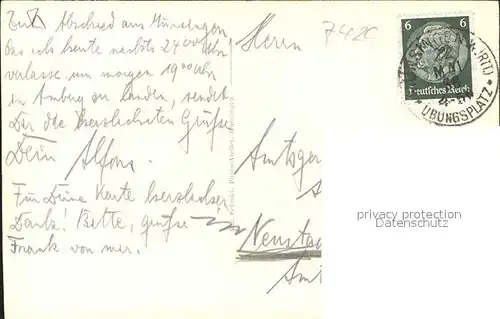 Zum Abschied aus Münsingen,
das ich heute nachts 24 00 Uhr
verlasse um morgen 19 00 Uhr
in Amberg zu landen, sendet
Dir die herzlichsten Grüße
Dein Alfons.
Für Deine Karte herzlichen
Dank! Bitte, grüße
Frank von mir.
Herrn
7420
Amtsger
Neustad
Amt
6 6
Deutsches Reich
ÜBUNGSPLATZ
privacy protection
Datenschutz